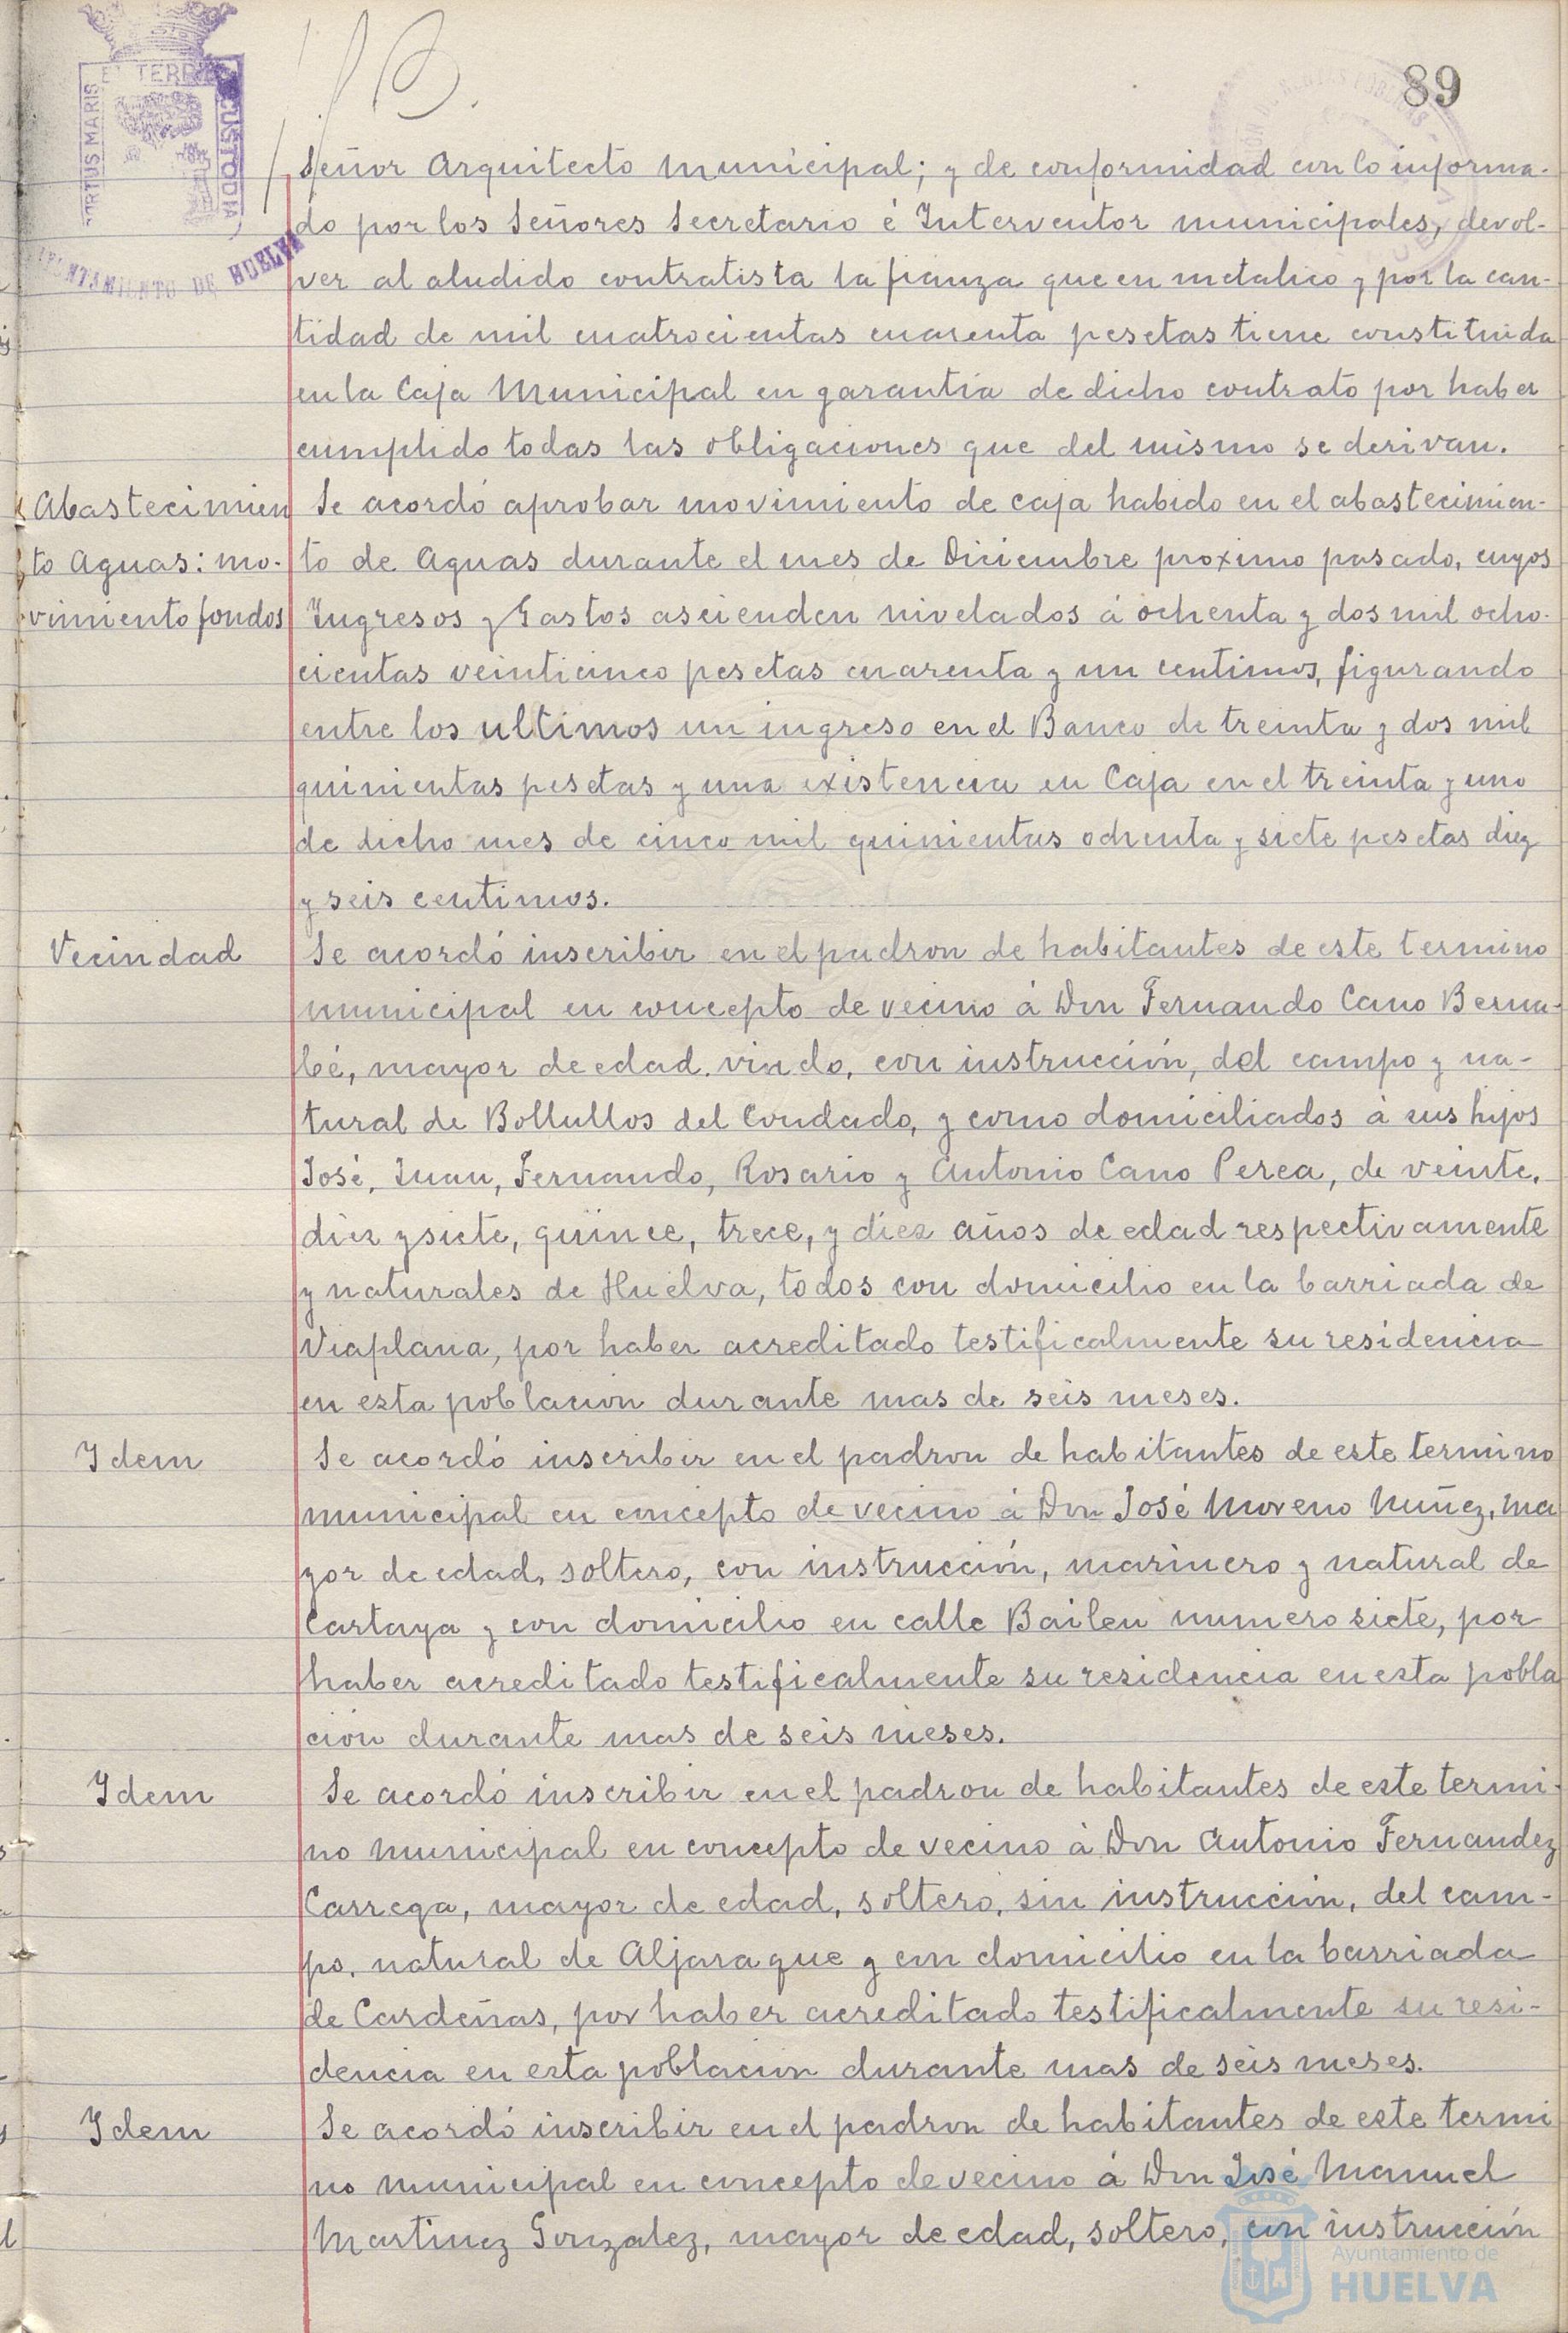 89
ET TERRE CUSTODIA
PORTUS MARIS
AYUNTAMIENTO DE HUELVA
Señor Arquitecto Municipal; y de conformidad con lo informa-
do por los Señores Secretario é Interventor municipales, devol-
ver al aludido contratista la fianza que en metalico y por la can-
tidad de mil cuatrocientas cuarenta pesetas tiene constituida
en la Caja Municipal en garantía de dicho contrato por haber
cumplido todas las obligaciones que del mismo se derivan.
Abastecimien
to Aguas: mo-
vimiento fondos
Se acordó aprobar movimiento de caja habido en el abastecimien-
to de Aguas durante el mes de Diciembre proximo pasado, cuyos
Ingresos y Gastos ascienden nivelados á ochenta y dos mil ocho-
cientas veinticinco pesetas cuarenta y un centimos, figurando
entre los ultimos un ingreso en el Banco de treinta y dos mil
quinientas pesetas y una existencia en Caja en el treinta y uno
de dicho mes de cinco mil quinientas ochenta y siete pesetas diez
y seis centimos.
Vecindad
Se acordó inscribir en el padron de habitantes de este termino
municipal en concepto de vecino á Don Fernando Cano Berna-
bé, mayor de edad. viudo, con instrucción, del campo y na-
tural de Bollullos del Condado, y como domiciliados á sus hijos
José, Juan, Fernando, Rosario y Antonio Cano Perea, de veinte,
diez y siete, quince, trece, y diez años de edad respectivamente
y naturales de Huelva, todos con domicilio en la barriada de
Viaplana, por haber acreditado testificalmente su residencia
en esta poblacion durante mas de seis meses.
Idem
Se acordó inscribir en el padron de habitantes de este termino
municipal en concepto de vecino á Don José Moreno Nuñez, ma
yor de edad, soltero, con instrucción, marinero y natural de
Cartaya y con domicilio en calle Bailen numero siete, por
haber acreditado testificalmente su residencia en esta pobla
ción durante mas de seis meses.
Idem
Se acordó inscribir en el padron de habitantes de este termi-
no municipal en concepto de vecino á Don Antonio Fernandez
Carrega, mayor de edad, soltero, sin instrucción, del cam-
po, natural de Aljaraque y con domicilio en la barriada
de Cardeñas, por haber acreditado testificalmente su resi-
dencia en esta poblacion durante mas de seis meses.
Idem
Se acordó inscribir en el padron de habitantes de este termi
no municipal en concepto de vecino á Don José Manuel
Martinez Gonzalez, mayor de edad, soltero, con instrucción
Ayuntamiento de
HUELVA